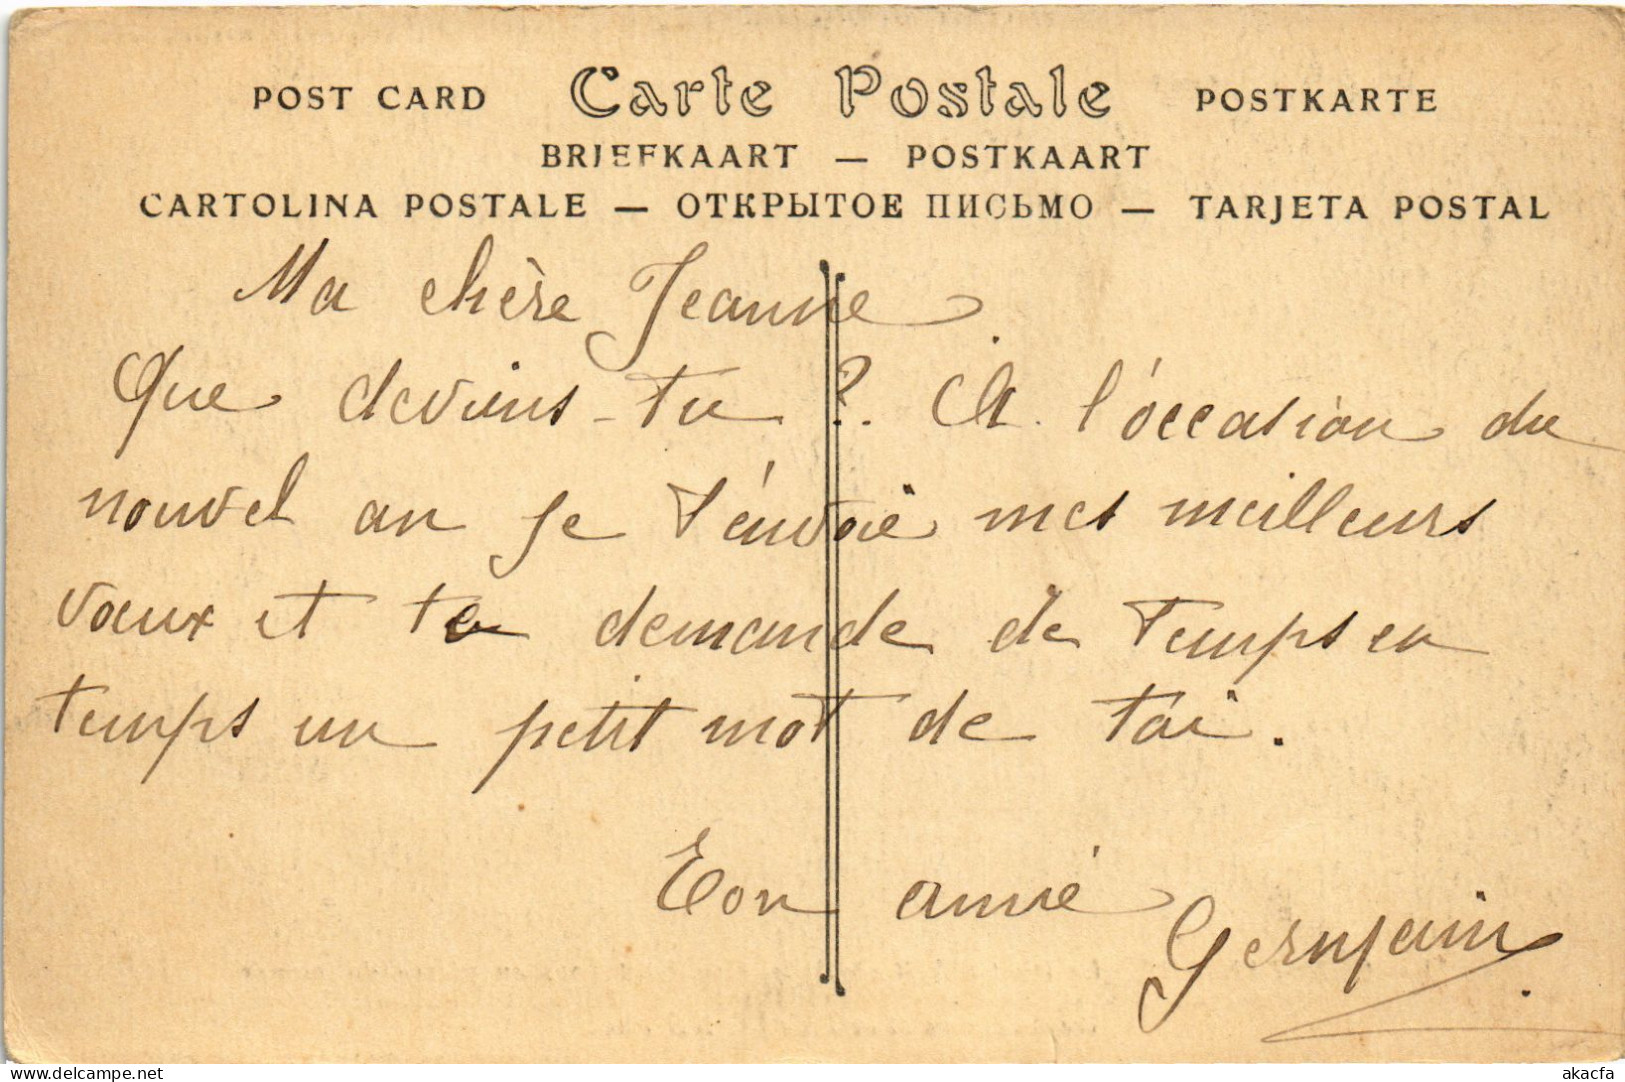 POST CARD Carte Postale POSTKARTE
BRIEFKAART — POSTKAART
CARTOLINA POSTALE — ОТКРЫТОЕ ПИСЬМО — TARJETA POSTAL
Ma chère Jeanne
Que deviens-tu ?. A l'occasion du
nouvel an je t'envoie mes meilleurs
vœux et te demande de temps en
temps un petit mot de toi.
Ton amie
Germain
akacfa